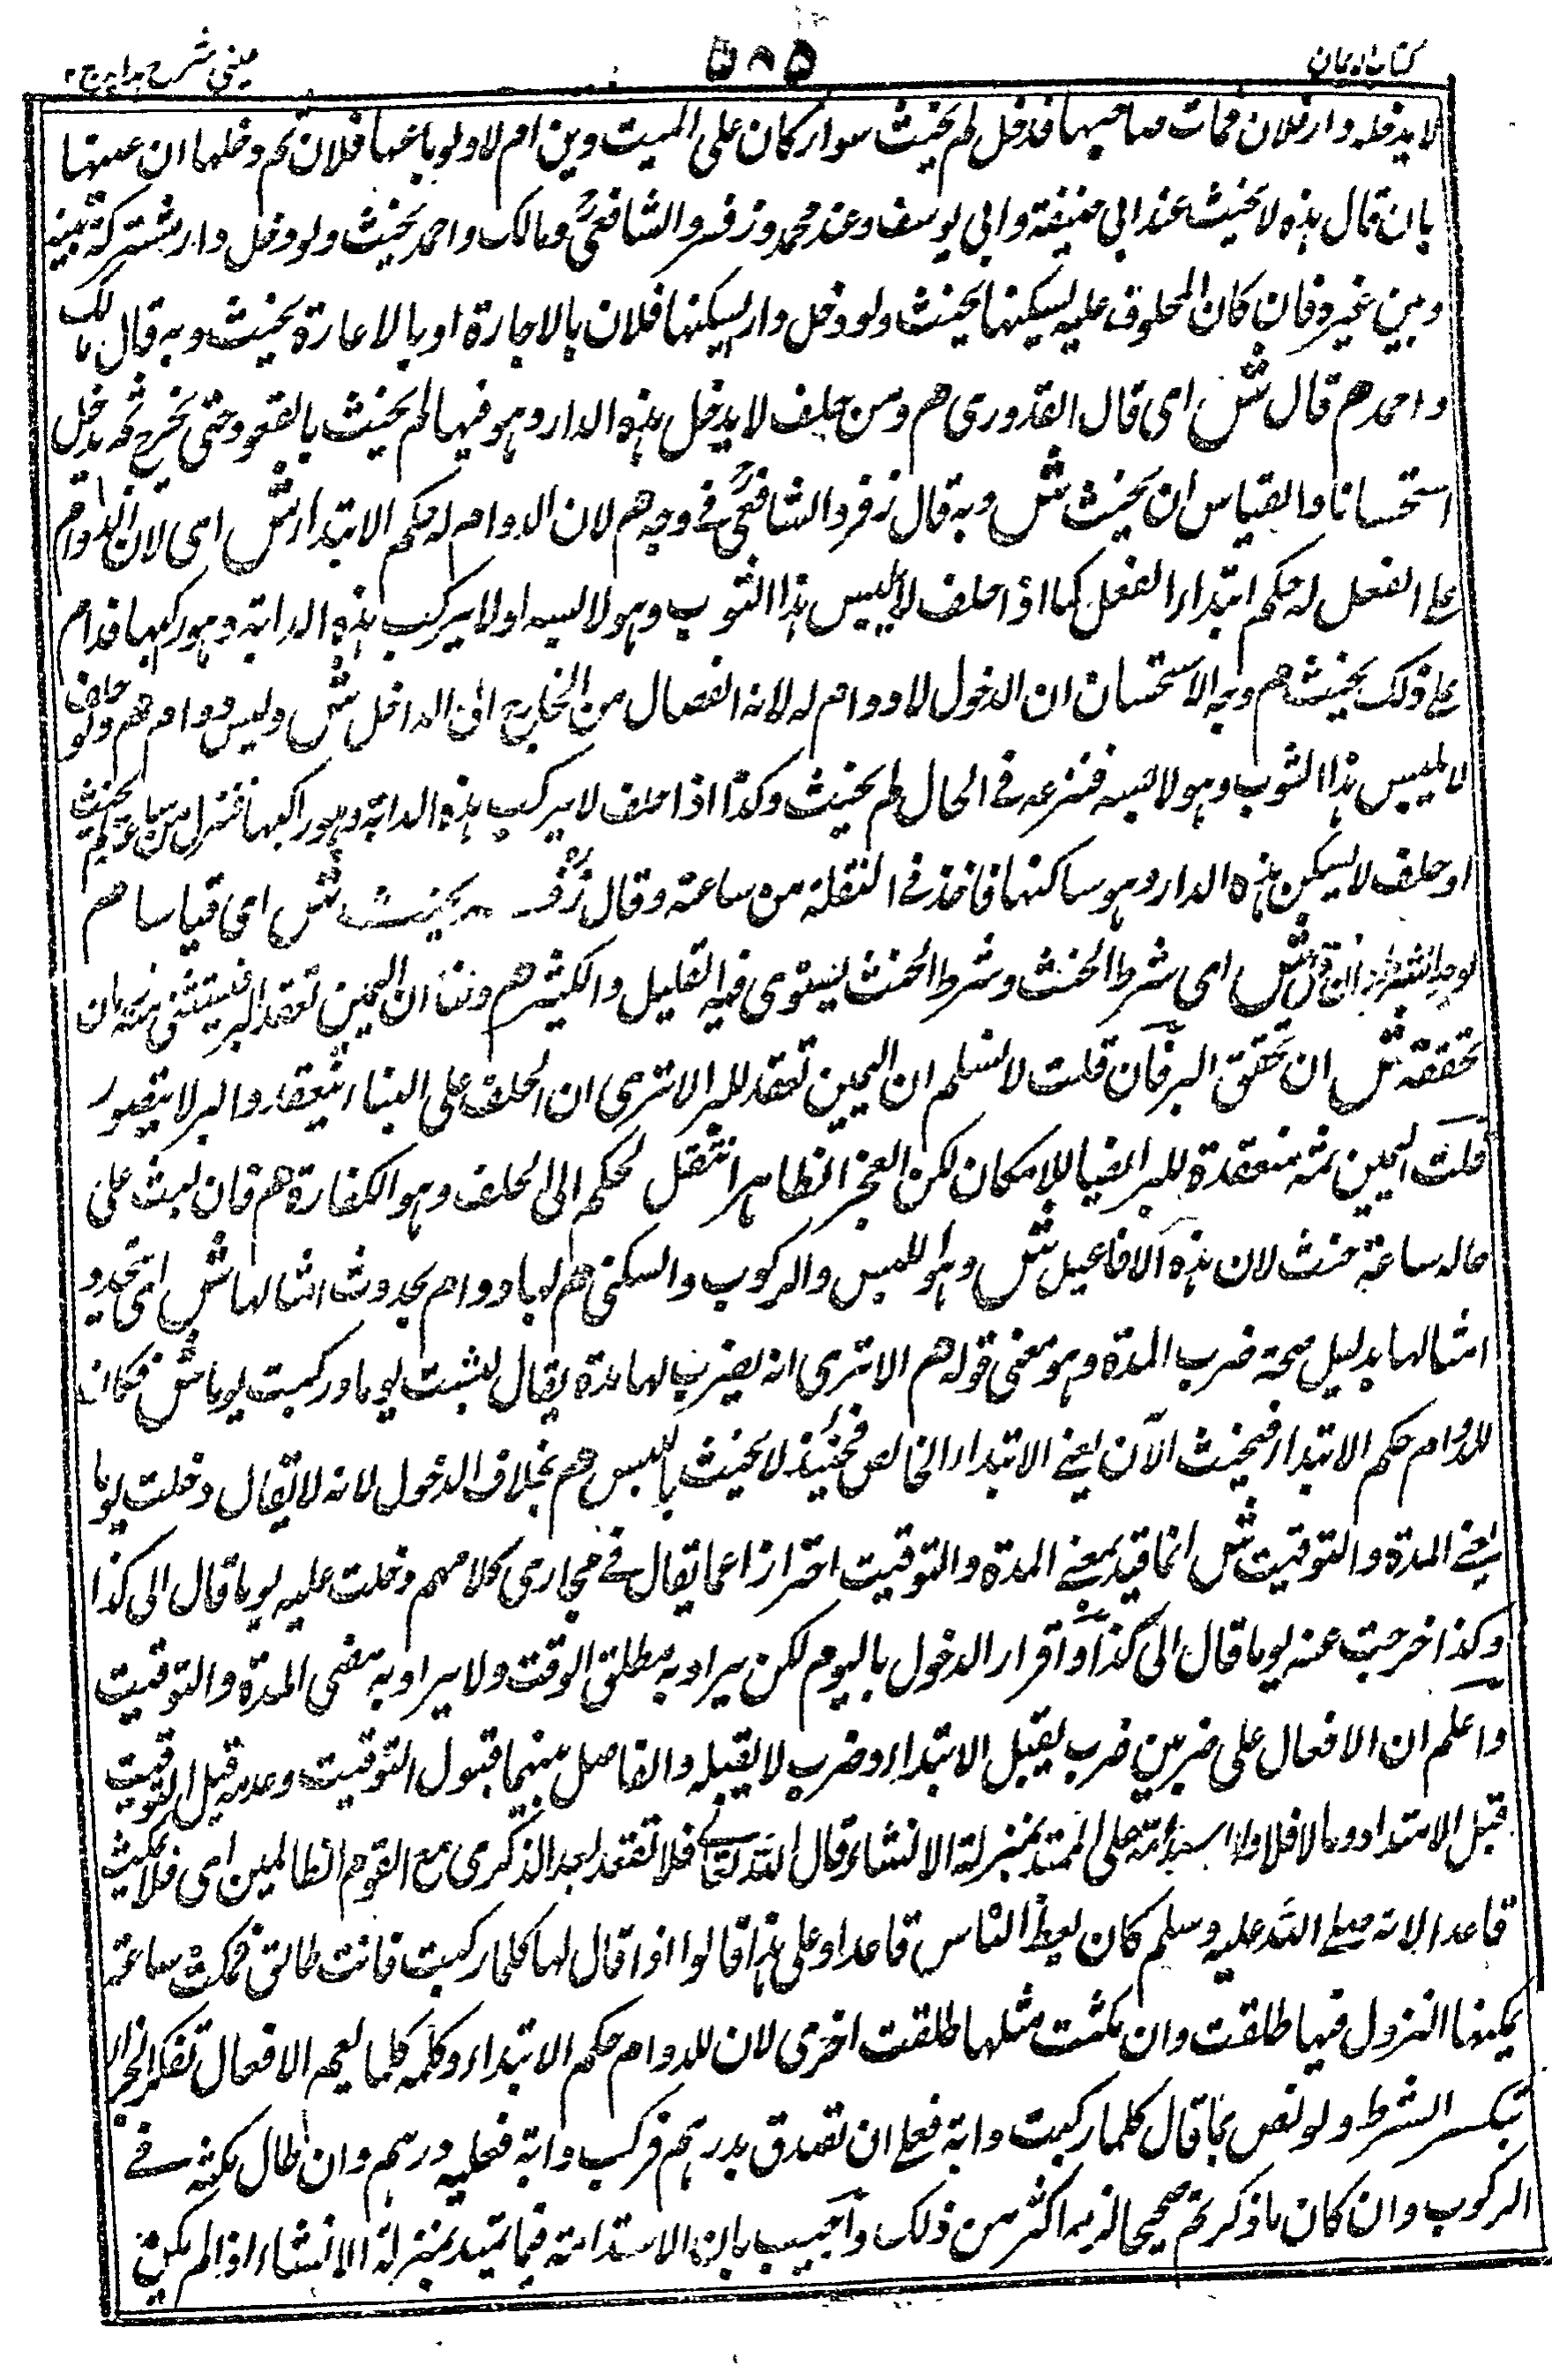 كتاب الايمان
٥٨٥
عيني شرح هدايه ج ٢
لا يدخل دار فلان فمات صاحبها فدخل لم يحنث سواء كان على الميت دين ام لا ولو باعها فلان ثم دخلها ان عينها
بان قال هذه لا يحنث عند ابي حنيفة وابي يوسف وعند محمد وزفر والشافعي ومالك واحمد يحنث ولو دخل دار مشتركة بينه
وبين غيره فان كان المحلوف عليه يسكنها يحنث ولو دخل دار يسكنها فلان بالاجارة او بالاعارة يحنث وبه قال مالك
واحمد هم قال ش اى قال القدورى هم ومن حلف لا يدخل هذه الدار وهو فيها لم يحنث بالقعود حتى يخرج ثم يدخل
استحسانا والقياس ان يحنث ش وبه قال زفر والشافعي فے وجه هم لان الدوام له حكم الابتداء ش اى لان الدوام
علے الفعل له حكم ابتداء الفعل كما اذا حلف لا يلبس هذا الثوب وهو لابسه او لا يركب هذه الدابة وهو راكبها فدام
علے ذلك يحنث هم وجه الاستحسان ان الدخول لا دوام له لانه انفصال من الخارج الى الداخل ش وليس دوام هم ولو حلف
لا يلبس هذا الثوب وهو لابسه فنزعه فے الحال لم يحنث وكذا اذا حلف لا يركب هذه الدابة وهو راكبها فنزل من ساعته لم يحنث
او حلف لا يسكن هذه الدار وهو ساكنها فاخذ فے النقلة من ساعته وقال زفر يحنث ش اى قياسا هم
لوجود الشرط وان قل ش اى شرط الحنث وشرط الحنث يستوى فيه القليل والكثير هم ولنا ان اليمين تعقد للبر فيستثنى منه زمان
تحققه ش ان تحقق البر فان قلت لا نسلم ان اليمين تعقد للبر الا ترى ان الحلف على البناء ينعقد والبر لا يتصور
قلت اليمين ثمه منعقدة للبر ايضا للامكان لكن العجز الظاهر انتقل الحكم الى الحلف وهو الكفارة هم فان لبث على
حاله ساعة حنث لان هذه الافاعيل ش وهو اللبس والركوب والسكنى هم لها دوام بحدوث امثالها ش اى تجدد
امثالها بدليل صحة ضرب المدة وهو معنى قوله هم الا ترى انه يضرب لها مدة يقال لبثت يوما وركبت يوما ش فكان
للدوام حكم الابتداء فيحنث الآن يعنے الابتداء الخالص فحينئذ لا يحنث باللبس هم بخلاف الدخول لانه لا يقال دخلت يوما
يعنے المدة والتوقيت ش انما قيد بمعنے المدة والتوقيت احترازا عما يقال فے مجارى كلامهم دخلت عليه يوما قال الى كذا
وكذا خرجت عنه يوما قال الى كذا واقرار الدخول باليوم لكن يراد به مطلق الوقت ولا يراد به معنى المدة والتوقيت
واعلم ان الافعال على ضربين ضرب يقبل الابتداء وضرب لا يقبله والفاصل بينهما قبول التوقيت وعدمه قبل التوقيت
قبل الامتداد وما لا فلا على الممتد بمنزلة الانشاء قال الله تعالے فلا تقعد بعد الذكرى مع القوم الظالمين اى فلا تمكث
قاعدا لانه صلے الله عليه وسلم كان يعظ الناس قاعدا وعلى هذا قالوا اذا قال لها كلما ركبت فانت طالق فمكث ساعة
يمكنها النزول فيها طلقت وان مكثت مثلها طلقت اخرى لان للدوام حكم الابتداء وكلمة كلما لعم الافعال تكرر الجزاء
بتكسر الشرط ولو نقض بما قال كلما ركبت دابة فعلے ان تصدق بدرهم فركب دابة فعليه درهم وان طال مكثه فے
الركوب وان كان ما ذكرتم صحيحا لزمه اكثر من ذلك واجيب بان الاستدامة فيما يمتد بمنزلة الانشاء اذا لم يكن